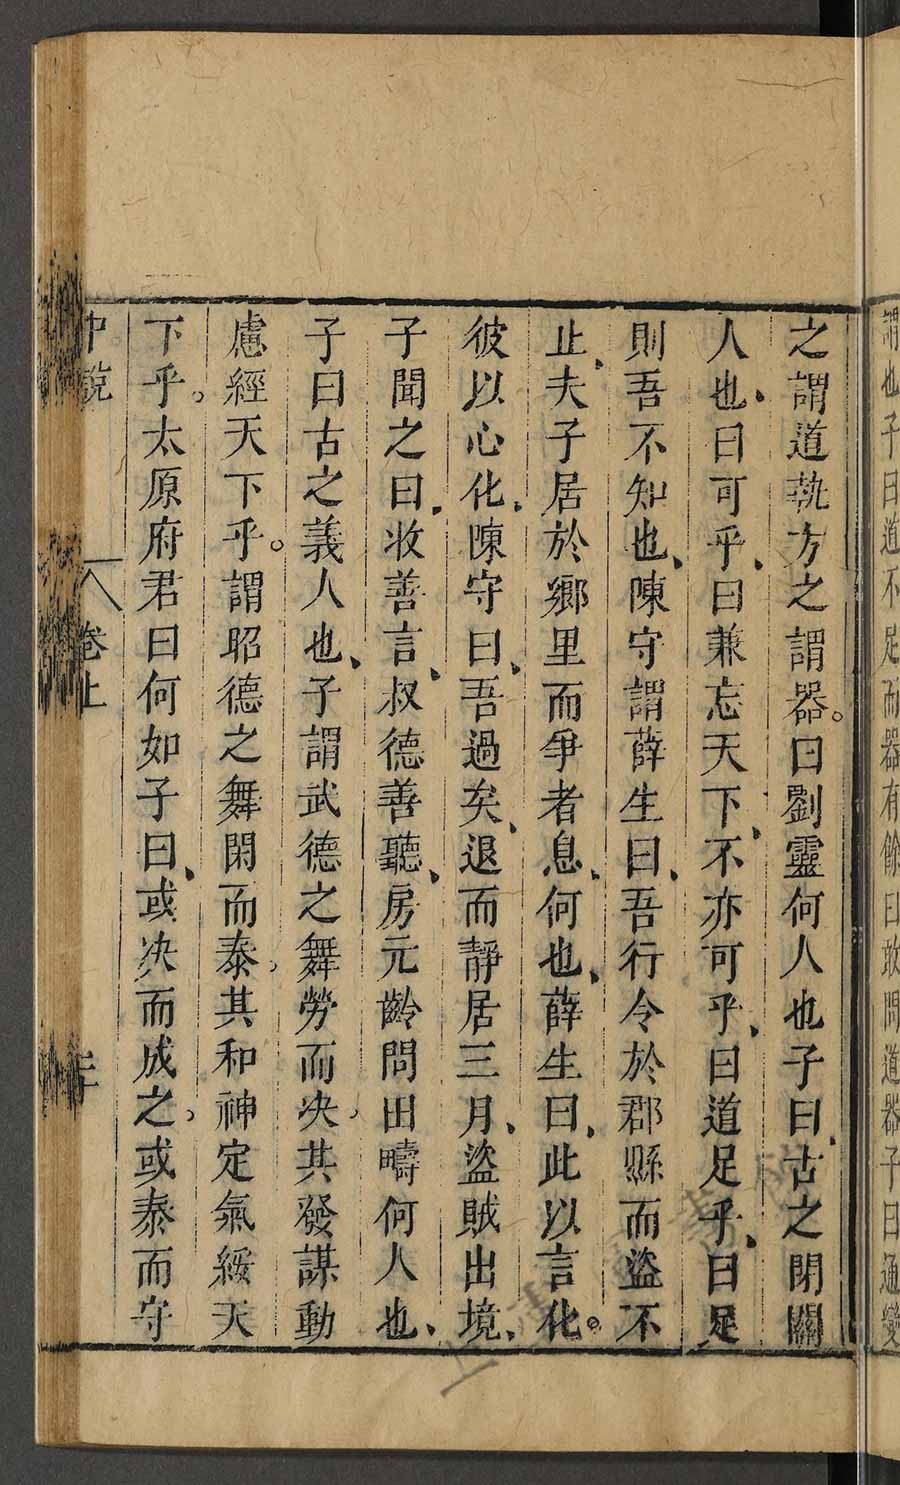 謂也子曰道不足而器有餘曰敢問道器子曰通變
之謂道執方之謂器。曰劉靈何人也子曰、古之閉關
人也、曰可乎、曰兼忘天下、不亦可乎、曰道足乎、曰足
則吾不知也、陳守謂薛生曰、吾行令於郡縣而盜不
止、夫子居於鄉里而爭者息、何也、薛生曰、此以言化。
彼以心化、陳守曰、吾過矣、退而靜居三月、盜賊出境、
子聞之曰、收善言、叔德善聽、房元齡問田疇何人也、
子曰古之義人也、子謂武德之舞勞而决、其發謀動
慮經天下乎。謂昭德之舞閑而泰、其和神定氣綏天
下乎。太原府君曰何如子曰、或决而成之、或泰而守
中說 卷上